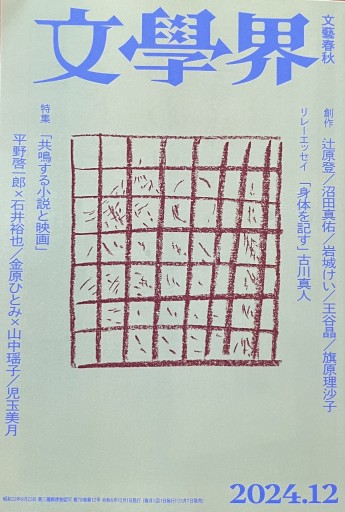 文藝春秋
文學界
創作 辻原登／沼田真佑／岩城けい／王谷晶／旗原理沙子
リレーエッセイ 「身体を記す」古川真人
特集 「共鳴する小説と映画」
平野啓一郎×石井裕也／金原ひとみ×山中瑶子／児玉美月
2024.12